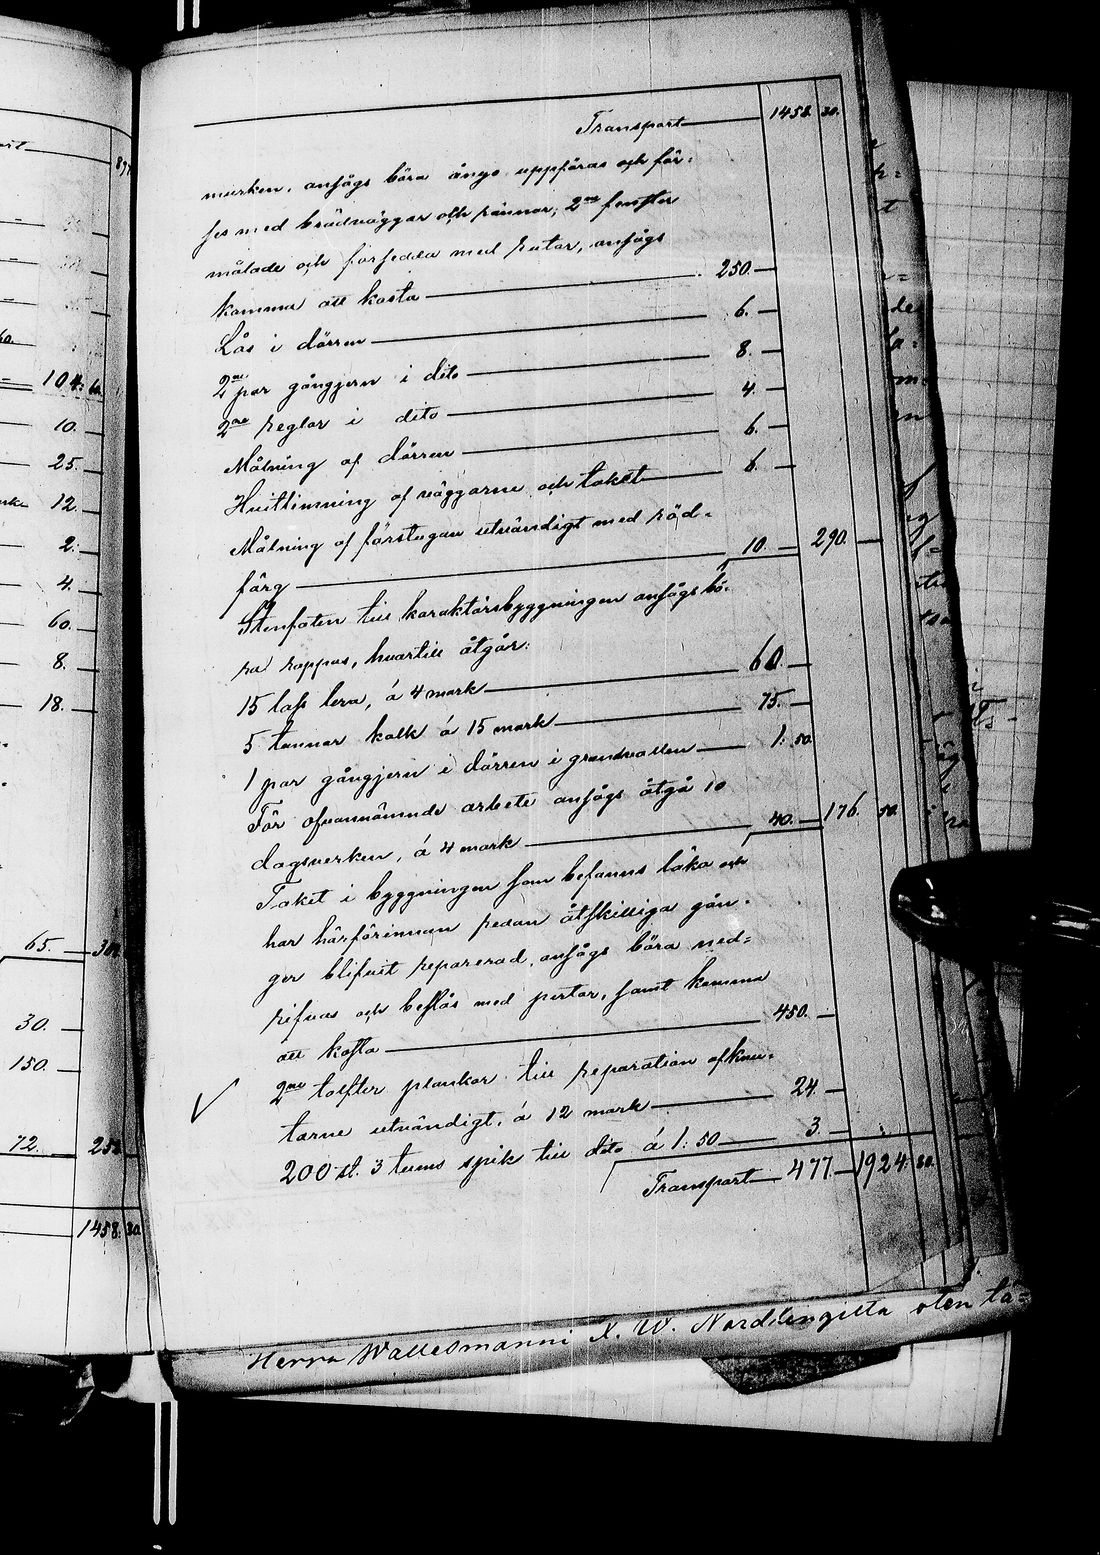 Transport 1458. 30.
murken, ansågs böra ånyo uppföras och för-
ses med brädväggar och rännor, 2ne fenster
målade och försedda med rutor, ansågs
komma att kosta 250.
Lås i dörren 6.
2ne par gångjern i dito 8.
2ne reglar i dito 4.
Målning af dörren 6.
Hvitlimning af väggarne och taket 6.
Målning af förstugan utvändigt med röd-
färg 10 290.
Stenfoten till karaktersbyggningen ansågs bö-
ra rappas, hvartill åtgår:
15 lass lera, á 4 mark 60.
5 tunnor kalk á 15 mark 75.
1 par gångjern i dörren i grundvallen 1: 50
För ofvannämnde arbete ansågs åtgå 10
dagsverken, á 4 mark 40. 176. 50.
Taket i byggningen som befanns läka och
har härförinnan redan åtskilliga gån-
ger blifvit reparerad, ansågs böra ned-
rifvas och beslås med pertor, samt komma
att kosta 450.
2ne tolfter plankor till reparation af knu-
tarne utvändigt, á 12 mark 24.
200 st. 3 tums spik till dito á 1: 50 3.
Transport 477. 1924. 80.
Herra Wallesmanni K. W. Nordlingiltä olen lä=
104: 60
10.
25.
12.
2:
4.
60.
8.
18.
65. 30
30.
150.
72.
1458: 30